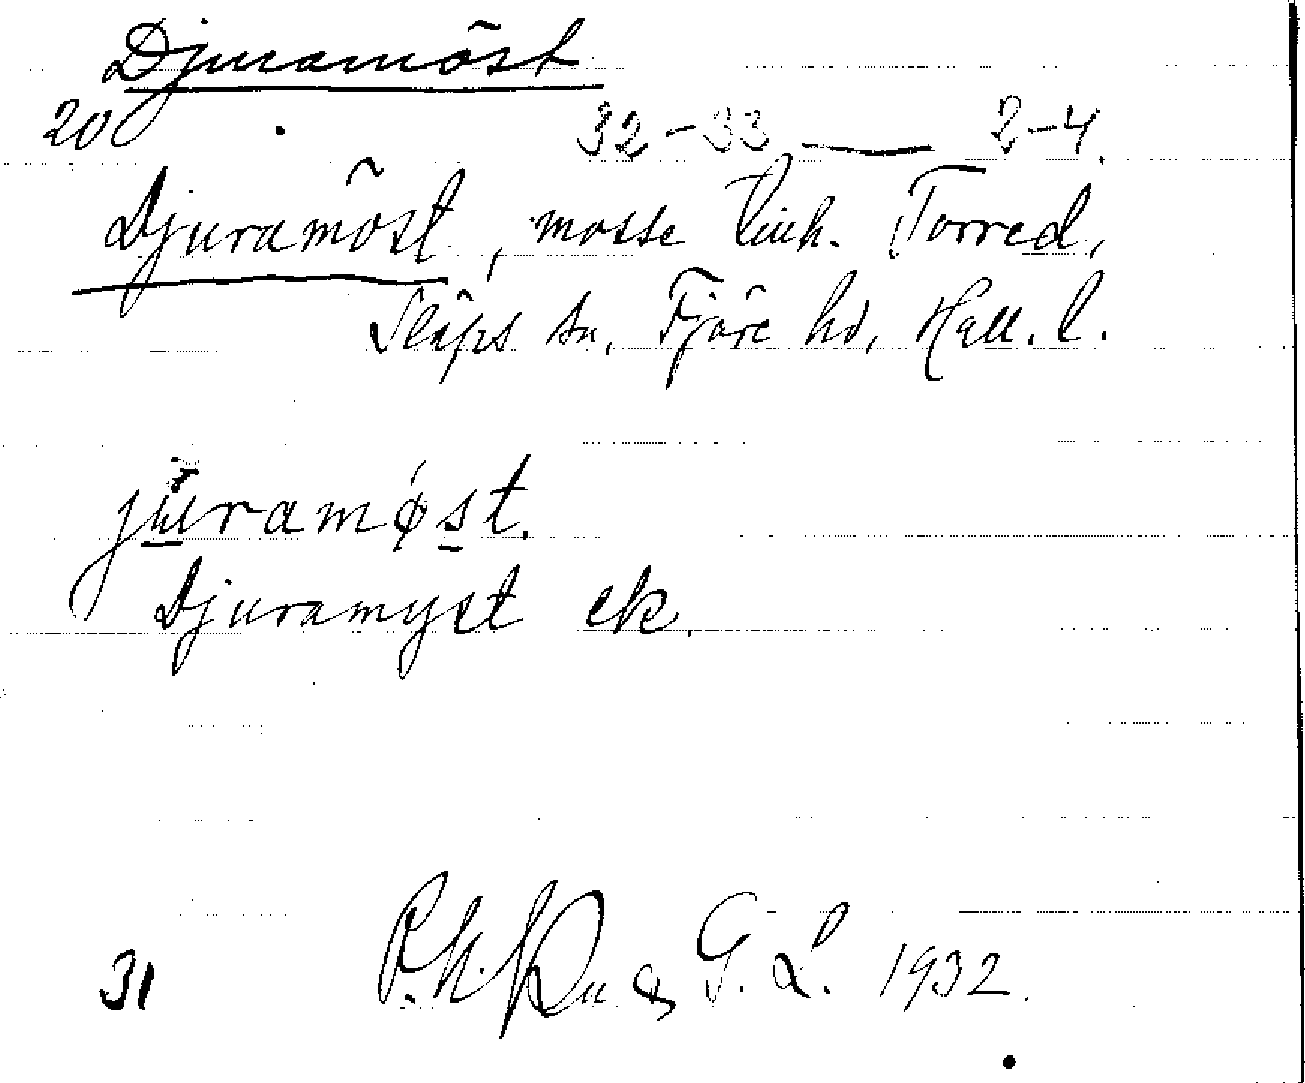 Djuramöst
20 32-33 — 2-4.
Djuramöst, mosse Torred,
Släps sn, Fjäre hd, Hall. l.
juramøst.
Djuramyst ek.
31 & G. L. 1932.